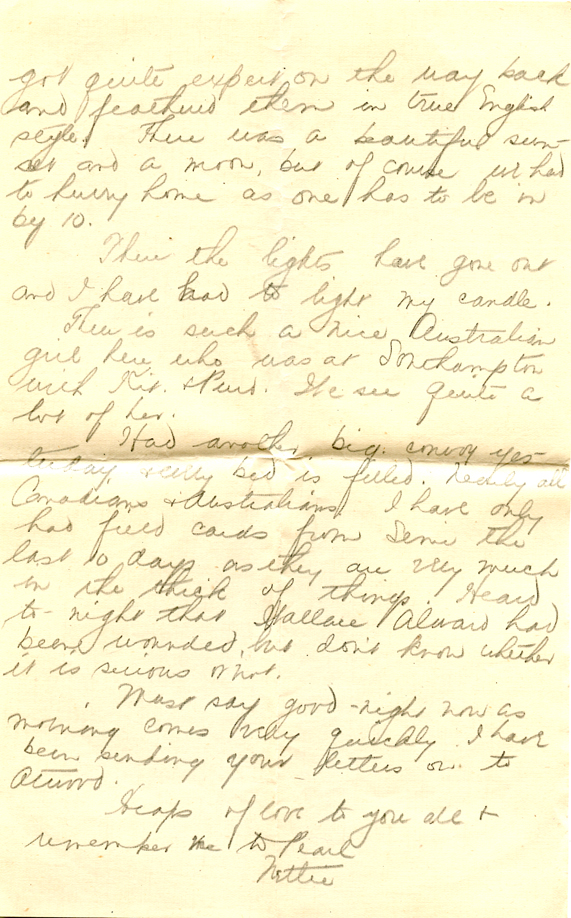 got quite expert on the way back
and feathered them in true English
style. There was a beautiful sun-
set and a moon, but of course we had
to hurry home as one has to be in
by 10.
There the lights have gone out
and I have had to light my candle.
There is such a nice Australian
girl here who was at Southampton
with Kit. & Purd. We see quite a
lot of her.
Had another big convoy yes-
terday, & every bed is filled. Nearly all
Canadians & Australians. I have only
had field cards from the
last 10 days as they are very much
in the thick of things. Heard
to-night that Wallace Alward had
been wounded, but don't know whether
it is serious or not.
Must say good-night now as
morning comes very quickly. I have
been sending your letters on to
Atwood.
Heaps of love to you all &
remember me to Pearl
Nettie